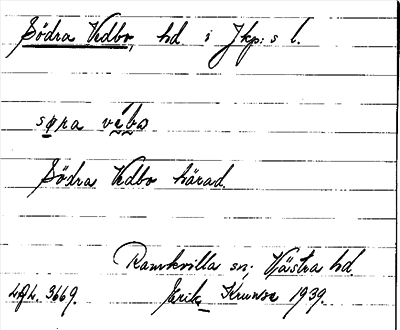 Södra Vedbo, hd i Jkp:s l.
søra vébo
Södra Vedbo härad.
Ramkvilla sn, Västra hd.
LAL. 3669. Erik Krunse 1939.